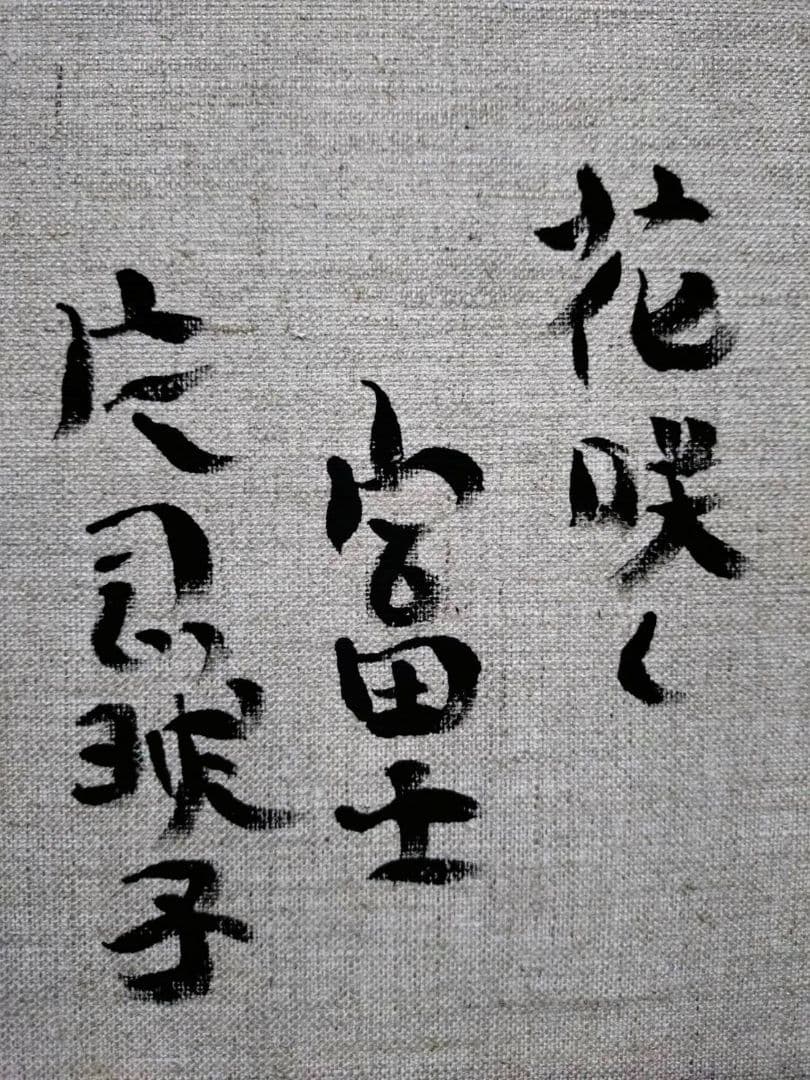 花咲く
富士
片岡球子